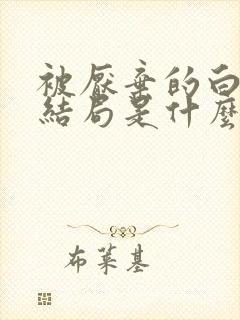 被厭棄的白
結局是什麼
布萊基